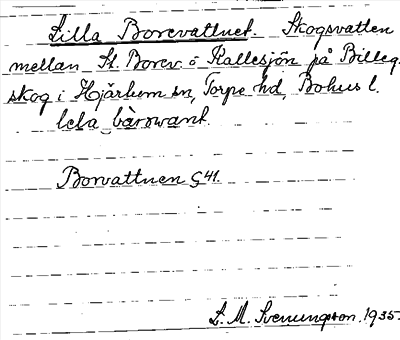 Lilla Borevattnet. Skogsvatten
mellan St. Borev. o Kallesjön på Billeg.
skog i Hjärtum sn, Torpe hd, Bohus l.
lela bòrəvant.
Borvattnen G 41.
L. M. Svenungsson. 1935.